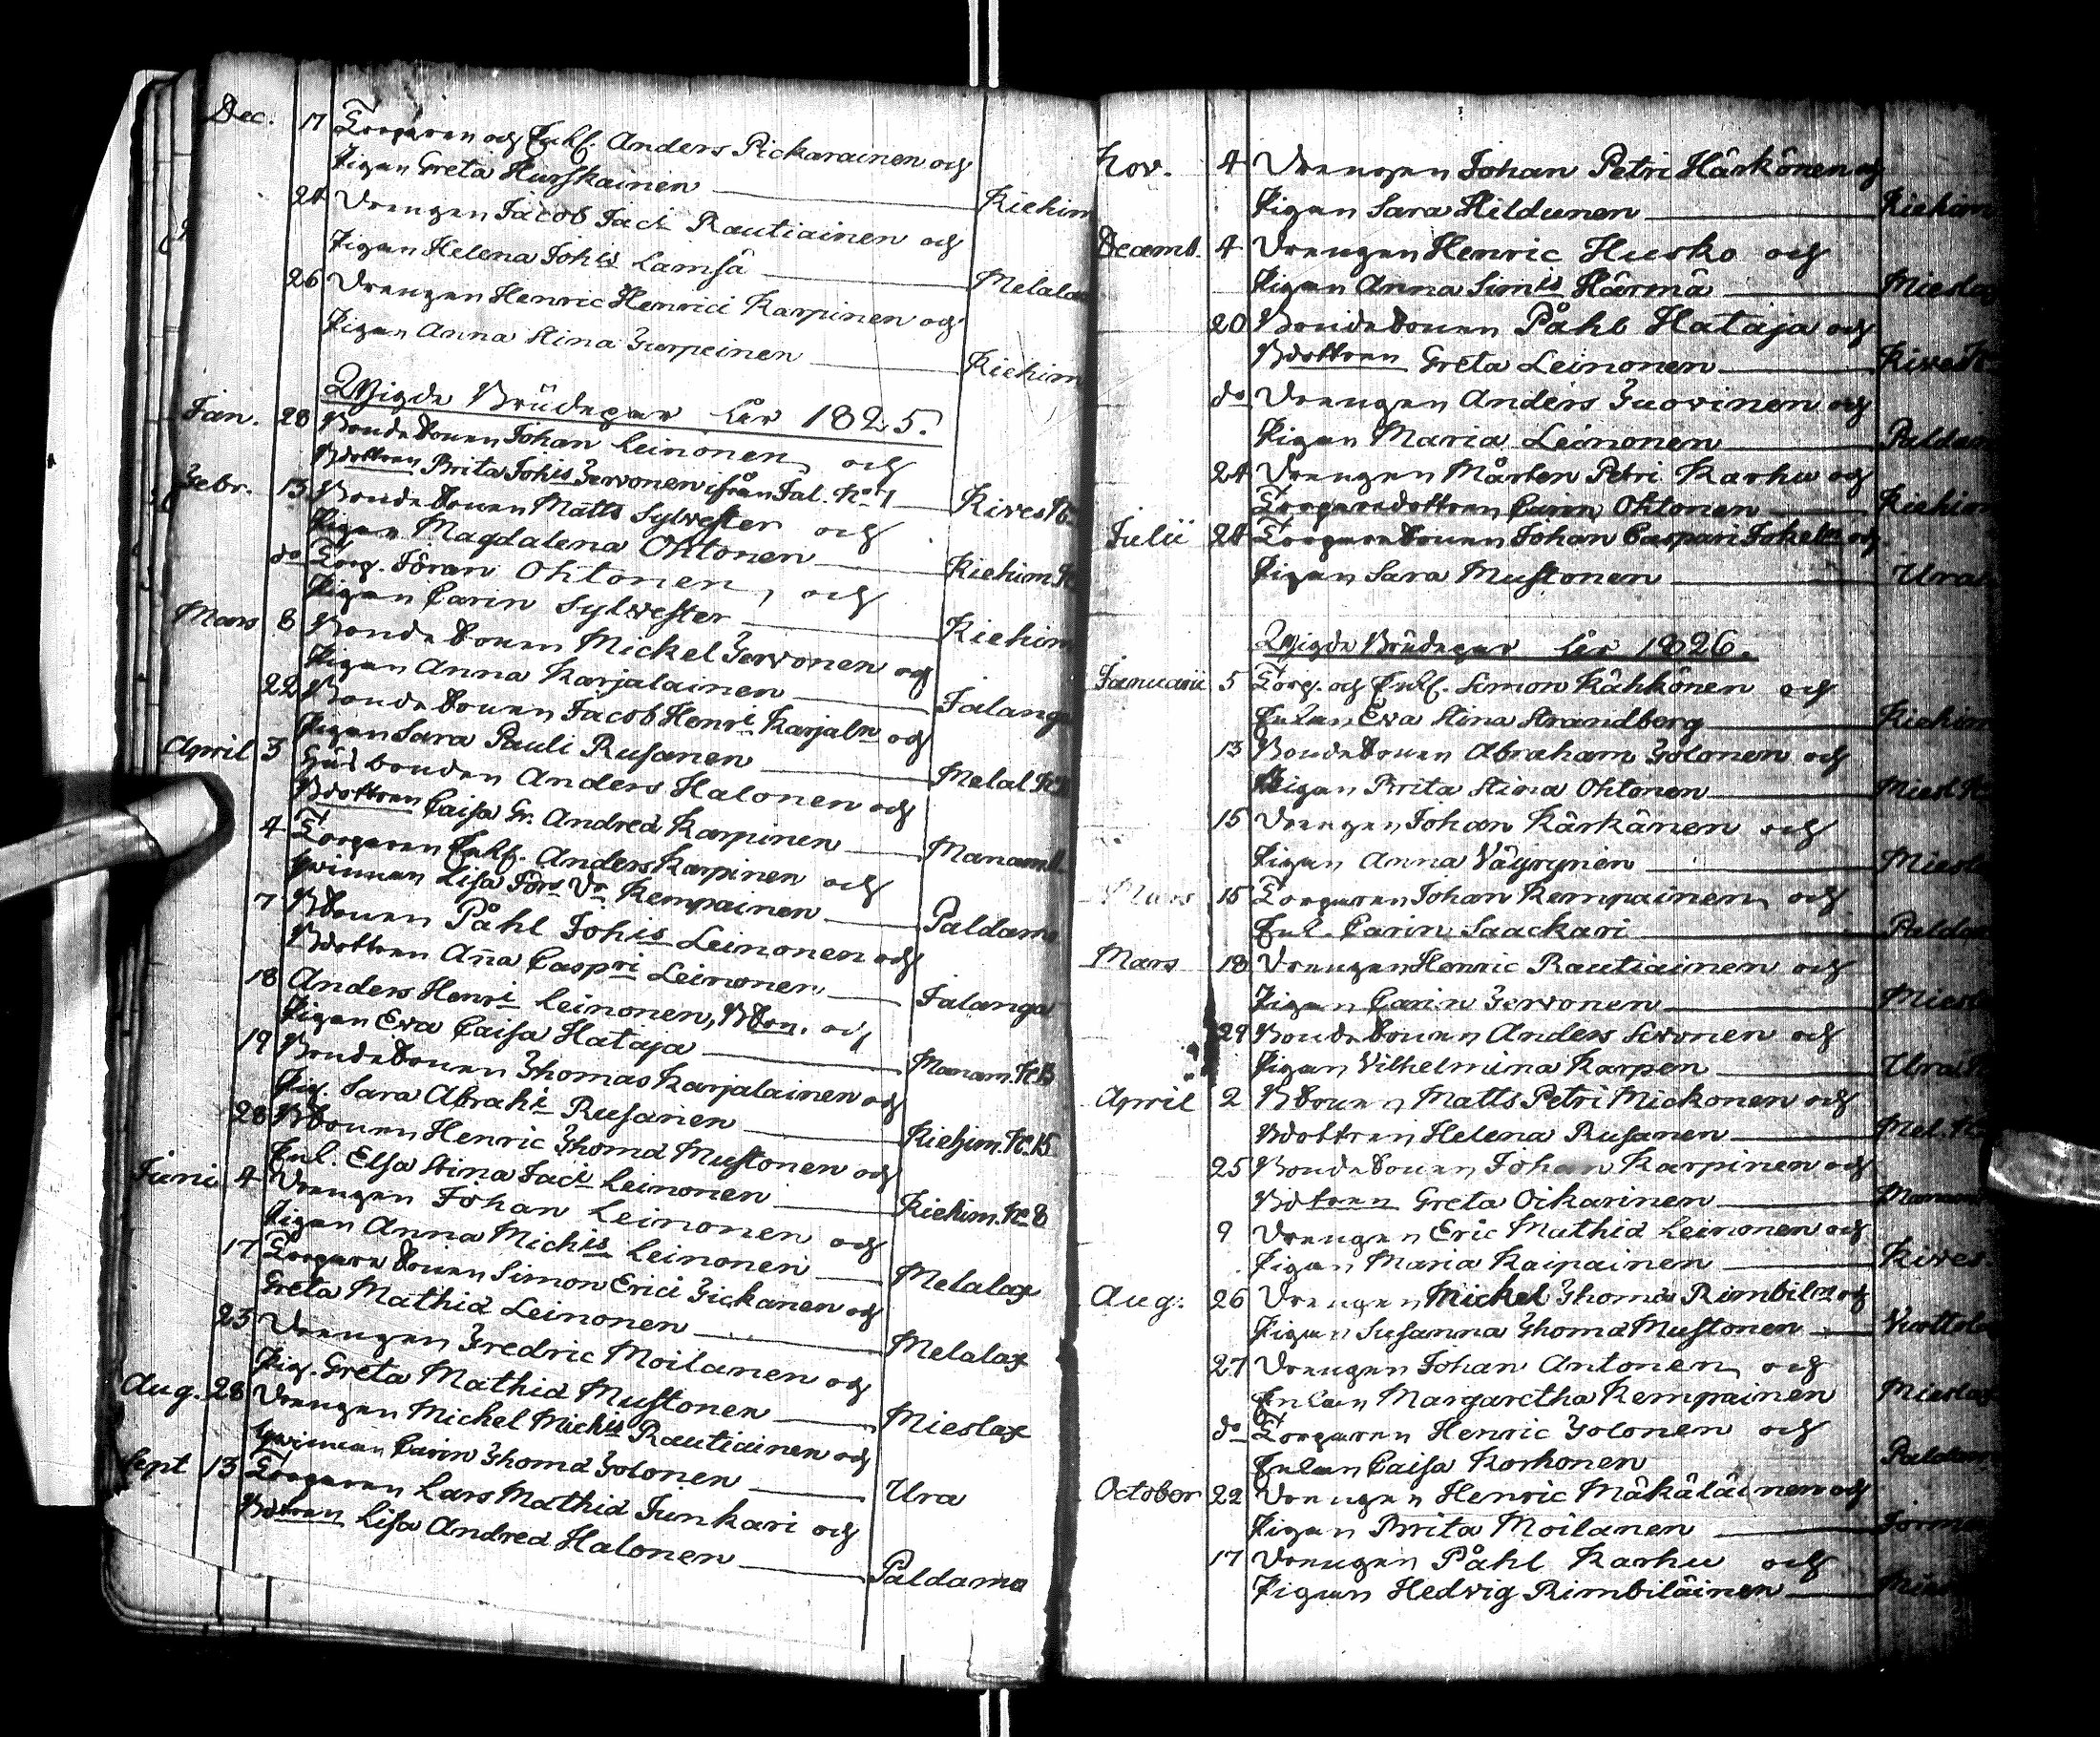 Dec. 17 Torparen och Enkl. Anders Pickarainen och
Pigan Greta Hurskainen Kiehim
24 Drengen Jacob Jaci Rautiainen och
Pigan Helena Johis Lamsä Melalax
26 Drengen Henric Henrici Karpinen och
Pigan Anna Stina Turpeinen Kiehim
Wigde Brüdepar år 1825.
Jan. 28 Bondesonen Johan Leinonen, och
Bdottren Brita Johis Tervonen ifrån Jal. No 7 Kives
Febr. 13 Bondesonen Matts Sylvester och
Pigan Magdalena Ohtonen Kiehim
do Torp. Jöran Ohtonen, och
Pigan Carin Sylvester Kiehim
Mars 8 Bondesonen Mickel Tervonen och
Pigan Anna Karjalainen Jalanga
22 Bondesonen Jacob Henri Karjaln och
Pigan Sara Pauli Rusanen Melal.
April 3 Husbonden Anders Halonen och
Bdottren Caisa Gr. Andreæ Karpinen Manam
4 Torparen Enkl. Anders Karpinen och
Qvinnan Lisa Jörs Dr Kempainen Paldamo
7 Bsonen Påhl Johis Leinonen och
Bdottren Aña Caspri Leinonen Jalanga
18 Anders Henri Leinonen, Bson. och
Pigan Eva Caisa Hataja Manam. No 13
19 Bondesonen Thomas Karjalainen och
Pig. Sara Abrahi Rusanen Kiehim. No 15
28 Bsonen Henric Thomæ Mustonen och
Enl. Elsa Stina Jaci Leinonen Kiehim. No 8
Juni 4 Drengen Johan Leinonen och
Pigan Anna Michis Leinonen Melalax
17 Torpare sonen Simon Erici Tickanen och
Greta Mathiæ Leinonen Melalax
23 Drengen Fredric Moilanen och
Pig. Greta Mathiæ Mustonen Mieslax
Aug. 28 Drengen Michel Michis Rautiainen och
Qvinnan Carin Thomæ Tolonen Ura
Sept 13 Torparen Lars Mathiæ Junkari och
Bdtren Lisa Andreæ Halonen Paldamo
Nov. 4 Drengen Johan Petri Härkönen och
Pigan Sara Hildunen Kiehim
Decemb. 4 Drengen Henric Husko och
Pigan Anna Simis Härmä Mieslax
20 Bondesonen Påhl Hataja och
Bdottren Greta Leinonen Kives
do Drengen Anders Juovinen och
Pigan Maria Leinonen Paldam
24 Drengen Mårten Petri Karhu och
Torparedottren Carin Ohtonen Kiehim
Julii 24 Torparesonen Johan Caspari Jokeln och
Pigan Sara Mustonen Ura
Wigde Brüdepar år 1826.
Januarii 5 Torp. och Enkl. Simon Kähkönen och
Enkan Eva Stina Strandberg Kiehim
13 Bondesonen Abraham Tolonen och
Pigan Brita Stina Ohtonen Miesl.
15 Drengen Johan Kärkänen och
Pigan Anna Väyrynen Miesla
Mars 15 Torparen Johan Kempainen, och
Enl. Carin Saackari Paldam
Mars 18 Drengen Henric Rautiainen och
Pigan Carin Tervonen Miesla
29 Bondesonen Anders Sivonen och
Pigan Vilhelmina Karpen Ura
April 2 Bsonen Matts Petri Mickonen och
Bdottren Helena Rusanen Mel.
25 Bondesonen Johan Karpinen och
Bdtren Greta Oikarinen Manam
9 Drengen Eric Mathiæ Leinonen och
Pigan Maria Kaipainen Kives
Aug. 26 Drengen Michel Thomæ Rimbiln och
Pigan Susanna Thomæ Mustonen Vuottola
27 Drengen Johan Antonen, och
Enkan Margaretha Kempainen Mieslax
do Torparen Henric Tolonen och
Enkan Caisa Korhonen Paldam
October 22 Drengen Henric Mäkäläinen och
Pigan Brita Moilanen Jorma
17 Drengen Påhl Karhu och
Pigan Hedvig Rimbiläinen Mies